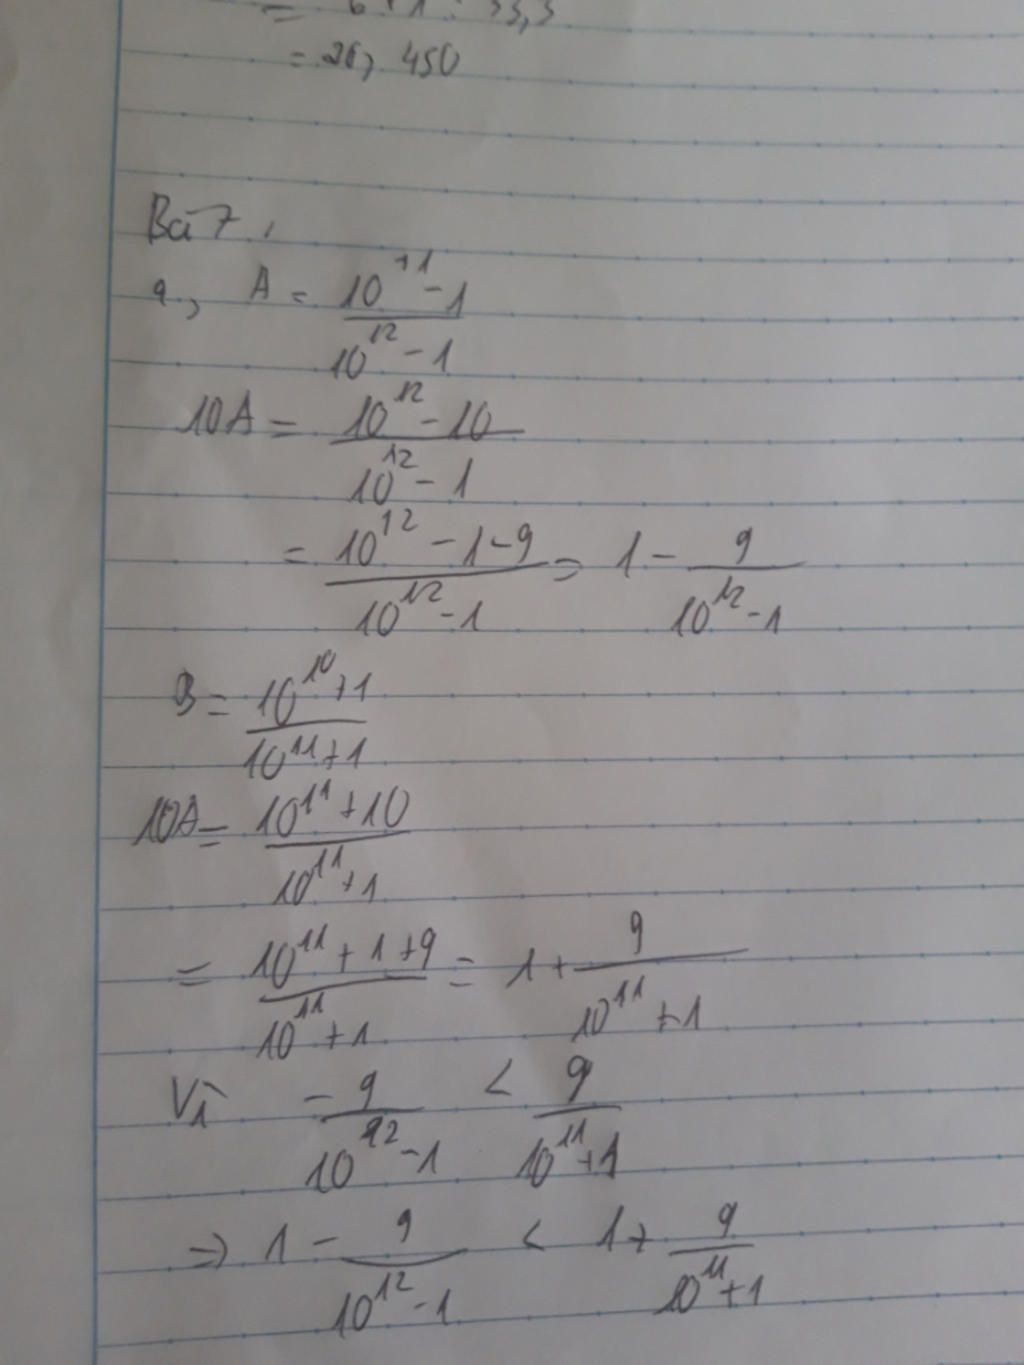 = 26, 450
Bài 7,
a, A = \frac{10^{11} - 1}{10^{12} - 1}
10A = \frac{10^{12} - 10}{10^{12} - 1}
= \frac{10^{12} - 1 - 9}{10^{12} - 1} = 1 - \frac{9}{10^{12} - 1}
B = \frac{10^{10} + 1}{10^{11} + 1}
10A = \frac{10^{11} + 10}{10^{11} + 1}
= \frac{10^{11} + 1 + 9}{10^{11} + 1} = 1 + \frac{9}{10^{11} + 1}
Vì \frac{-9}{10^{12} - 1} < \frac{9}{10^{11} + 1}
=> 1 - \frac{9}{10^{12} - 1} < 1 + \frac{9}{10^{11} + 1}